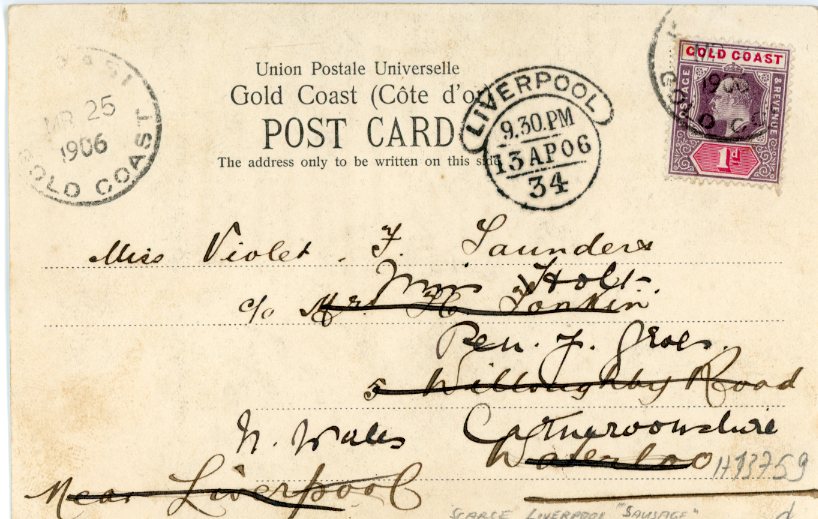 Union Postale Universelle
Gold Coast (Côte d'or
POST CARD
The address only to be written on this side
LIVERPOOL
9.30.PM
13 AP 06
34
MR 25
1906
GOLD COAST
GOLD COAST
& REVENUE
1d
1906
Miss Violet. F. Saunders
Mrs Holt.
c/o Mr. H. Tonkin.
Pen. y. Groes.
5 Willoughby Road
N. Wales Carnarvonshire
Waterloo
H13759
Near Liverpool
SCARCE LIVERPOOL "SAUSAGE"